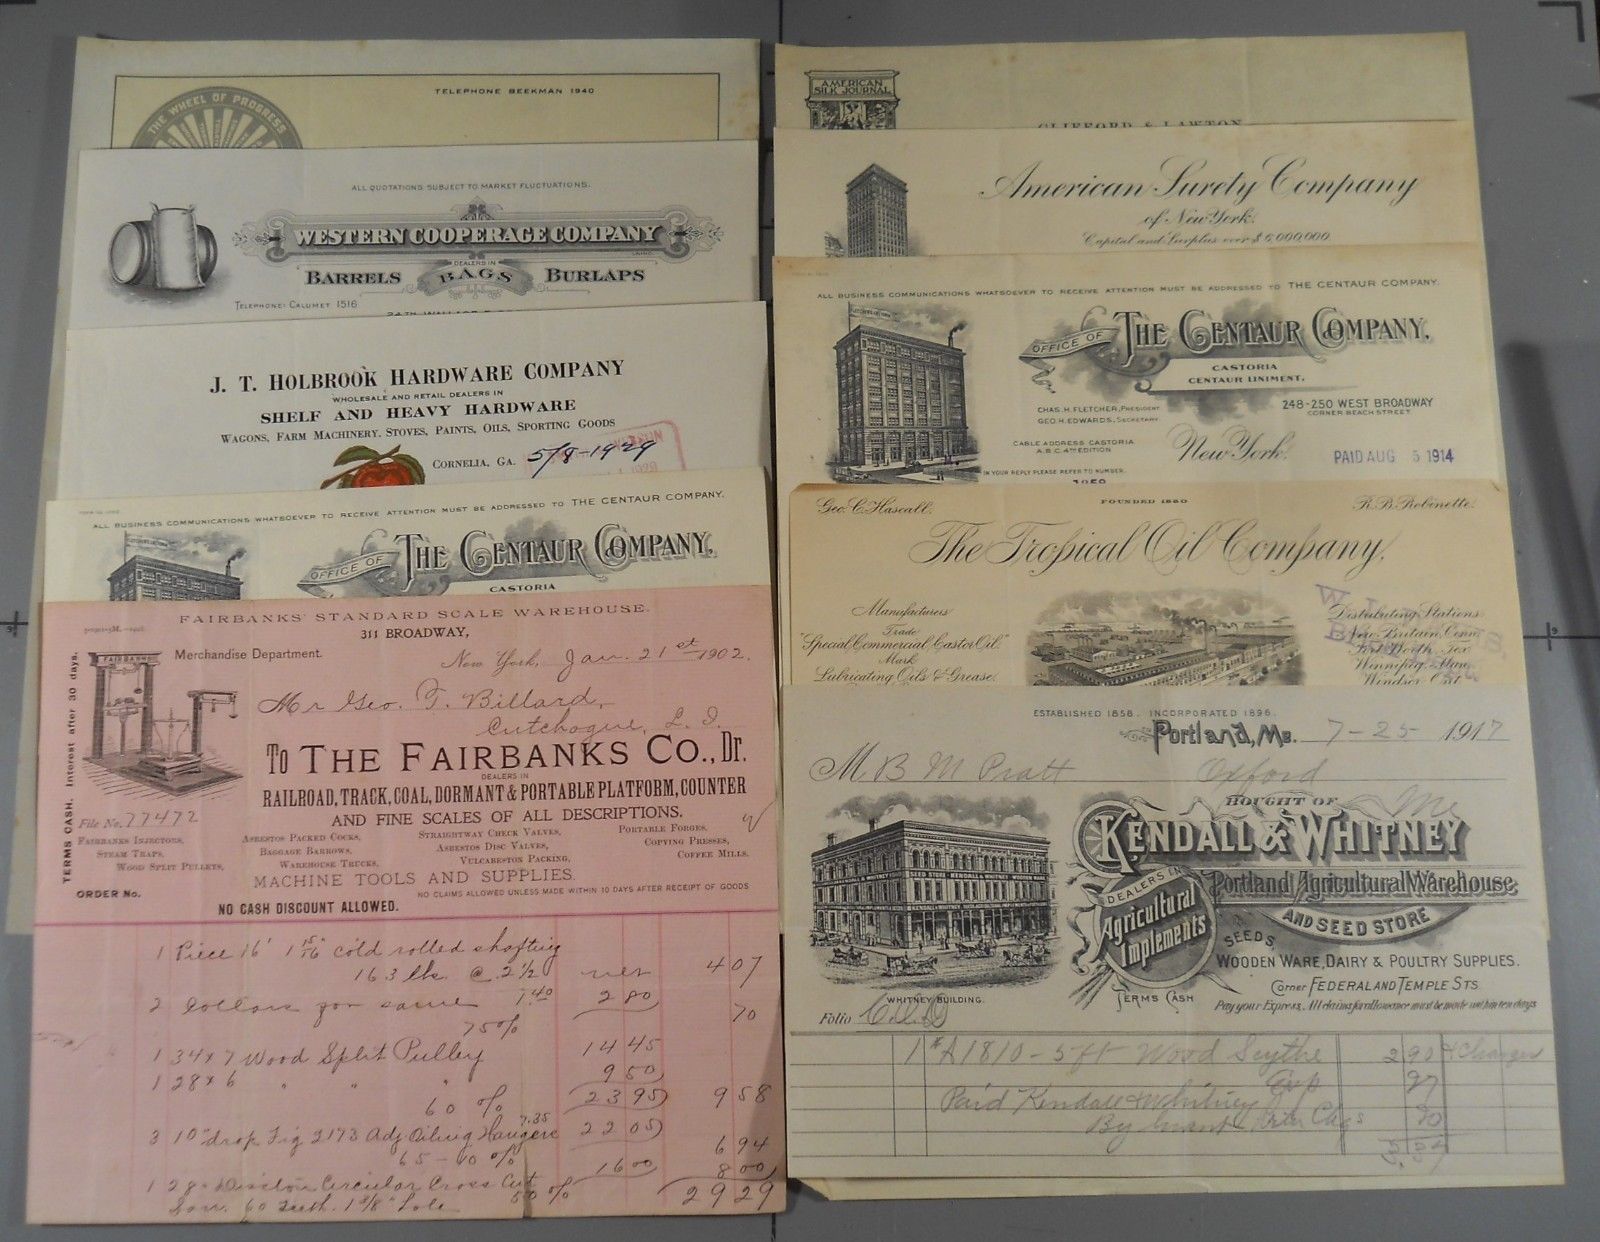 THE WHEEL OF PROGRESS
TELEPHONE BEEKMAN 1940
ALL QUOTATIONS SUBJECT TO MARKET FLUCTUATIONS.
WESTERN COOPERAGE COMPANY
DEALERS IN
BARRELS BAGS BURLAPS
TELEPHONE: CALUMET 1516
J. T. HOLBROOK HARDWARE COMPANY
WHOLESALE AND RETAIL DEALERS IN
SHELF AND HEAVY HARDWARE
WAGONS, FARM MACHINERY, STOVES, PAINTS, OILS, SPORTING GOODS
CORNELIA, GA. 5/8-1929
ALL BUSINESS COMMUNICATIONS WHATSOEVER TO RECEIVE ATTENTION MUST BE ADDRESSED TO THE CENTAUR COMPANY.
OFFICE OF THE CENTAUR COMPANY,
CASTORIA
FAIRBANKS' STANDARD SCALE WAREHOUSE.
311 BROADWAY,
FAIRBANKS
Merchandise Department.
New York, Jan. 21st 1902.
Mr Geo. T. Billard,
Cutchogue, L. I.
To THE FAIRBANKS CO., Dr.
DEALERS IN
RAILROAD, TRACK, COAL, DORMANT & PORTABLE PLATFORM, COUNTER
AND FINE SCALES OF ALL DESCRIPTIONS.
TERMS CASH. Interest after 30 days.
File No. 77472
FAIRBANKS INJECTORS,
STEAM TRAPS,
WOOD SPLIT PULLEYS,
ASBESTOS PACKED COCKS,
BAGGAGE BARROWS,
WAREHOUSE TRUCKS,
STRAIGHTWAY CHECK VALVES,
ASBESTOS DISC VALVES,
VULCABESTON PACKING,
PORTABLE FORGES,
COPYING PRESSES,
COFFEE MILLS.
MACHINE TOOLS AND SUPPLIES.
ORDER NO.
NO CLAIMS ALLOWED UNLESS MADE WITHIN 10 DAYS AFTER RECEIPT OF GOODS
NO CASH DISCOUNT ALLOWED.
1 Piece 16' 1 15/16" cold rolled shafting
163 lbs. @ 2 1/2 net 4 07
2 Collars for same 1.40 2 80
75% 70
1 34x7 Wood Split Pulley 14 45
1 28x6 " " " 9 50
60 % 23 95 9 58
3 10" drop Fig 2173 Adj Oiling Hangers 7.35 22 05
65-10 % 6 94
1 28" Disston Circular Cross Cut 16 00 8 00
Saw. 60 Teeth. 1 3/8" hole 50 % 29 29
AMERICAN
SILK JOURNAL
CLIFFORD & LAWTON
American Surety Company
of New York.
Capital and Surplus over $6,000,000
ALL BUSINESS COMMUNICATIONS WHATSOEVER TO RECEIVE ATTENTION MUST BE ADDRESSED TO THE CENTAUR COMPANY.
OFFICE OF THE CENTAUR COMPANY,
CASTORIA
CENTAUR LINIMENT.
CHAS. H. FLETCHER, PRESIDENT
GEO. H. EDWARDS, SECRETARY
248-250 WEST BROADWAY
CORNER BEACH STREET.
CABLE ADDRESS CASTORIA
A.B.C. 4TH EDITION
New York.
PAID AUG 5 1914
IN YOUR REPLY PLEASE REFER TO NUMBER.
Geo. C. Hascall. FOUNDED 1880 R. B. Robinette.
The Tropical Oil Company,
Manufacturers
Trade
"Special Commercial Castor Oil."
Mark
Lubricating Oils & Grease.
Distributing Stations
New Britain, Conn.
Fort Worth, Tex.
Winnipeg, Man.
Windsor, Ont.
ESTABLISHED 1858. INCORPORATED 1896.
Portland, Me. 7-25 1917
M B M Pratt
Oxford
Me
BOUGHT OF
KENDALL & WHITNEY
Portland Agricultural Warehouse
AND SEED STORE
DEALERS IN
Agricultural
Implements
SEEDS,
WOODEN WARE, DAIRY & POULTRY SUPPLIES.
Corner FEDERAL AND TEMPLE STS.
TERMS CASH
Pay your Express. All claims for allowance must be made within ten days
WHITNEY BUILDING.
Folio
1 #A1810 - 5 ft Wood Scythe 2 90 + Charges
Exp 27
Paid Kendall & Whitney